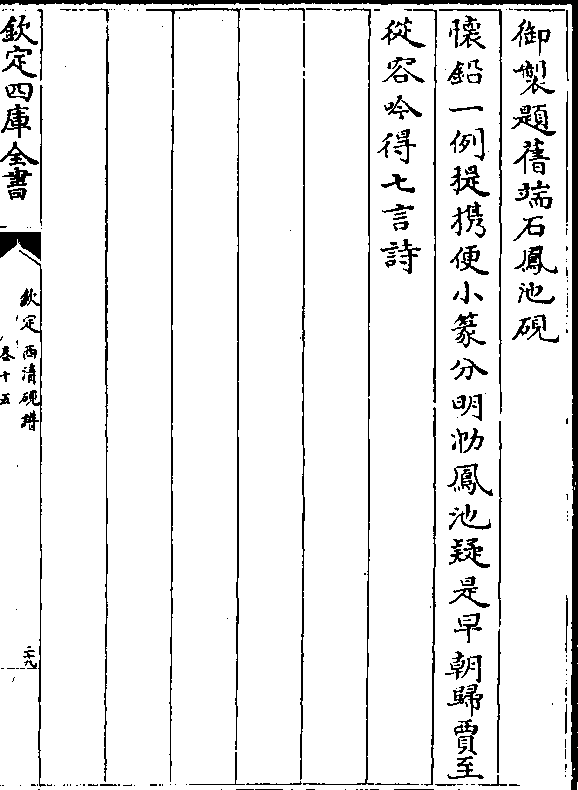 御製題舊端石鳳池硯
懷鉛一例提携便小篆分明泐鳳池疑是早朝歸賈至
從容吟得七言詩
欽定四庫全書
欽定西清硯譜
卷十五
二十九